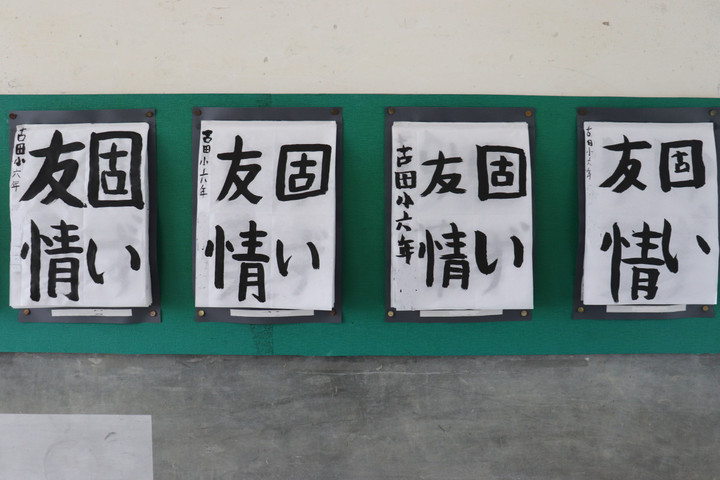 固い
友情
古田小六年
固い
友情
古田小六年
固い
友情
古田小六年
固い
友情
古田小六年